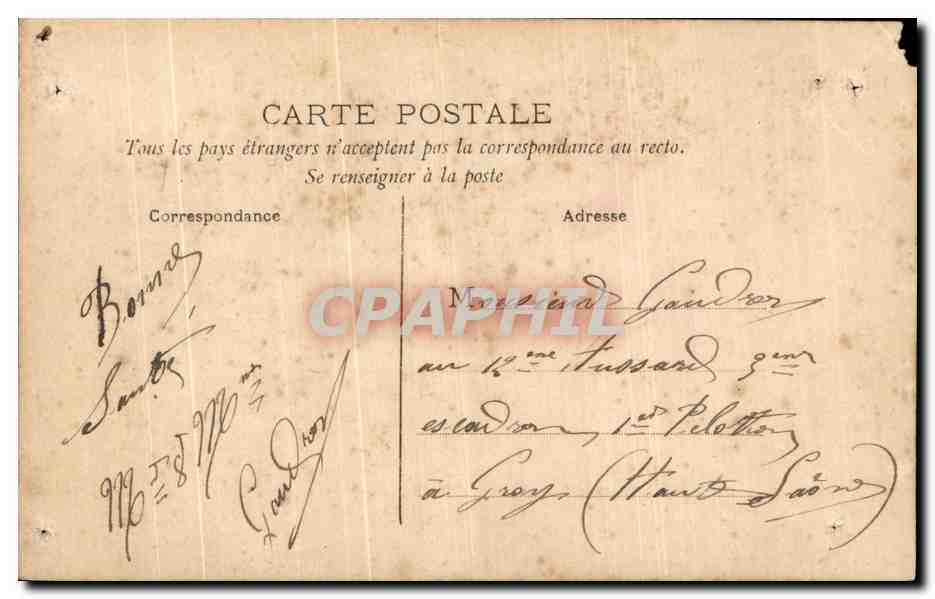 CARTE POSTALE
Tous les pays étrangers n'acceptent pas la correspondance au recto.
Se renseigner à la poste
Correspondance
Bonne
Santé
Gaudron
Adresse
Monsieur Gaudron
au 12eme Hussard 3eme
escadron 1er Peloton
à Gray (Haute Saône)
CPAPHIL